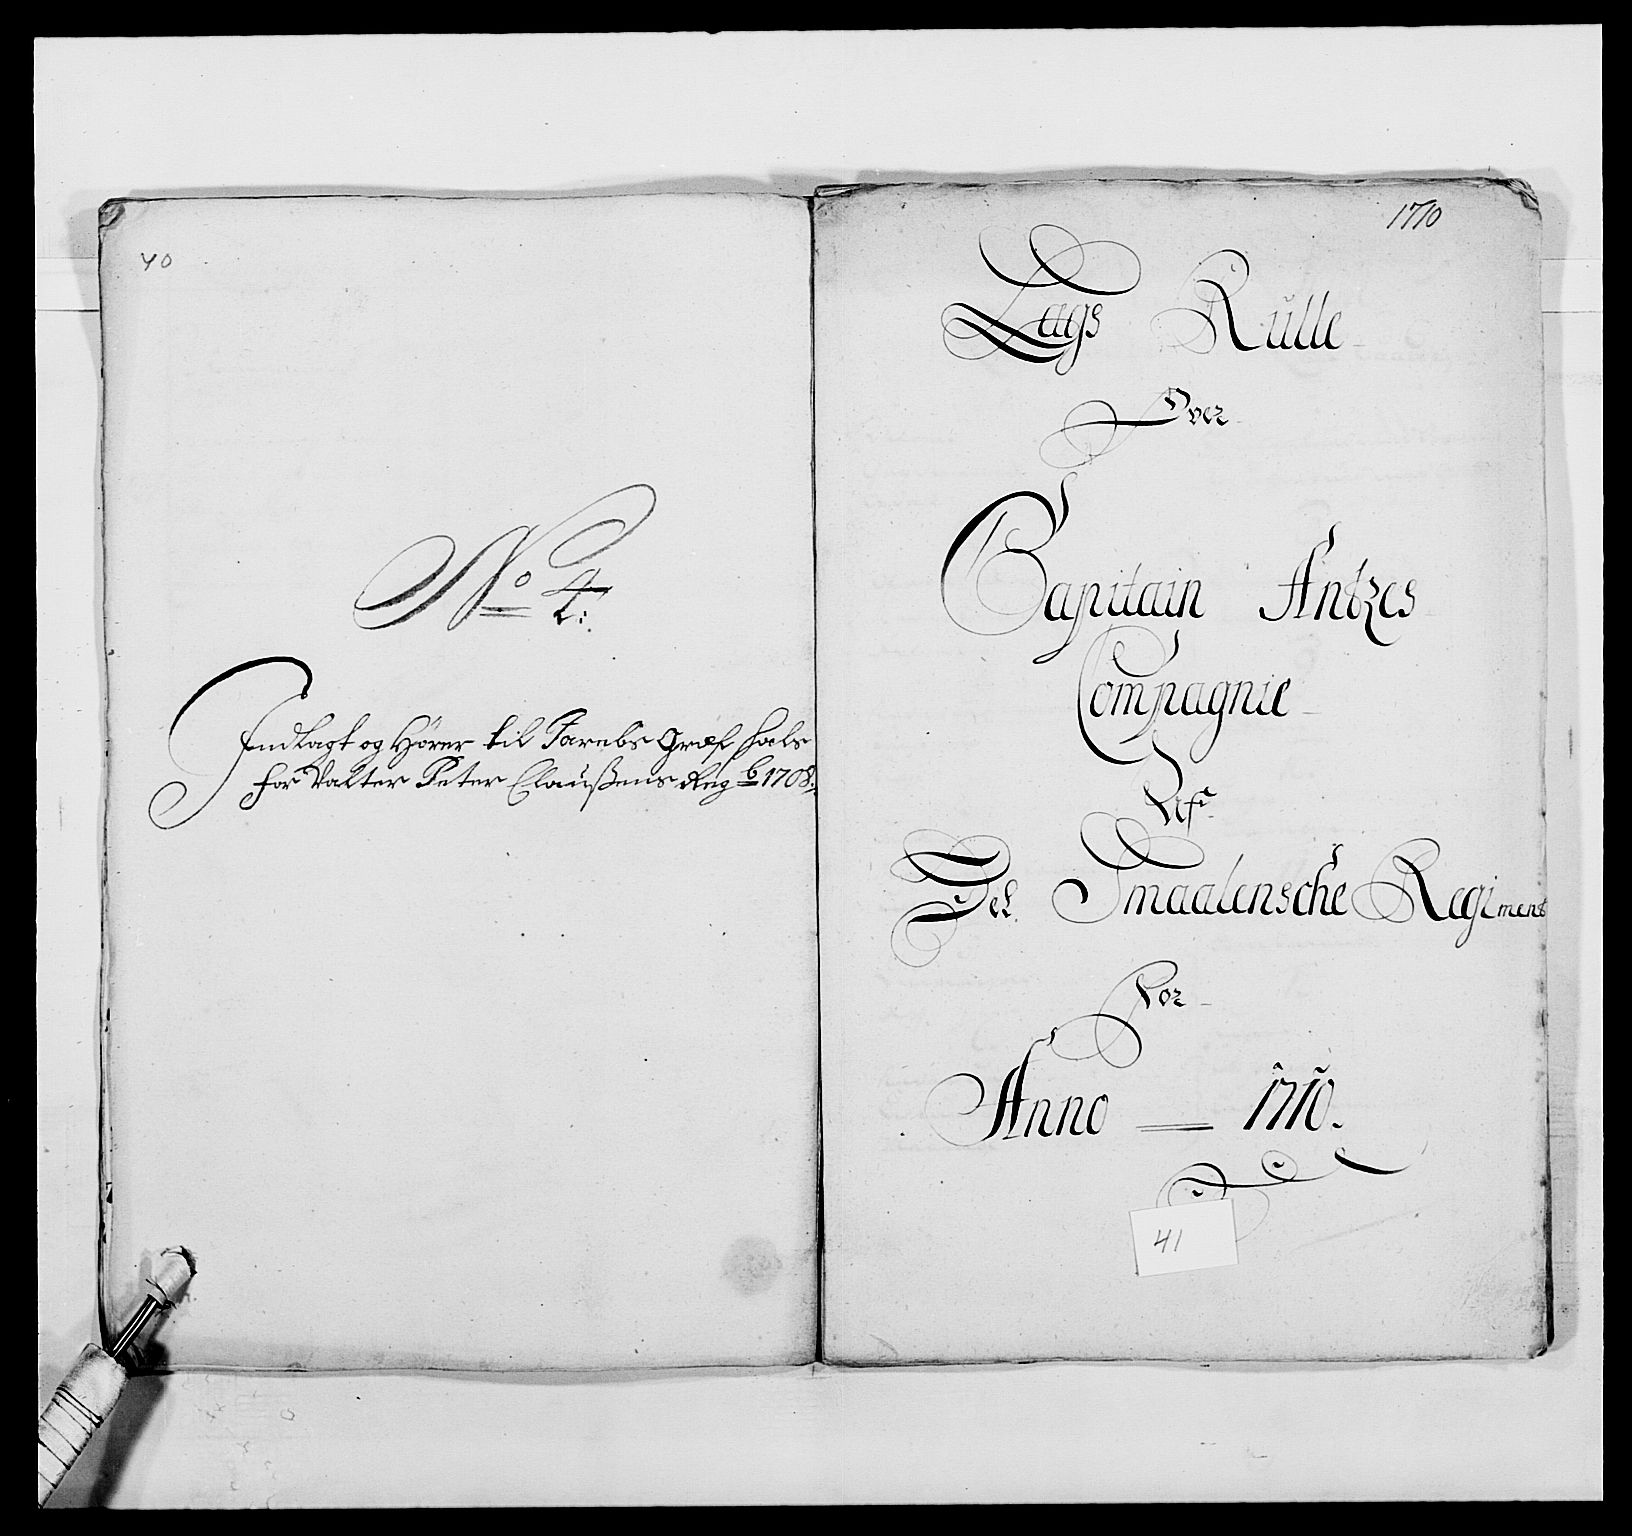 40
No 4:
Indlagt og Hører til
for Valter Peter Claußens Reg 1708.
1710
Lags Rulle
Over
Capitain Antzes
Compagnie
Af
Det Smaalensche Regiment
For
Anno 1710.
41